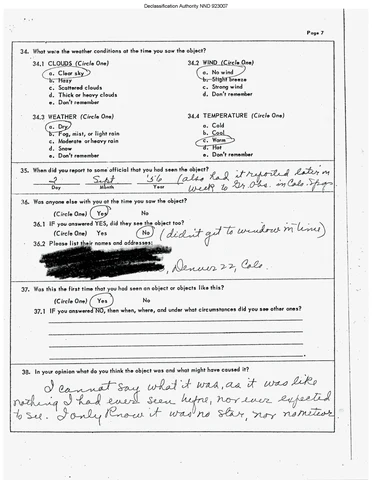 Declassification Authority NND 923007
Page 7
34. What were the weather conditions at the time you saw the object?
34.1 CLOUDS (Circle One) 34.2 WIND (Circle One)
a. Clear sky a. No wind
b. Hazy b. Slight breeze
c. Scattered clouds c. Strong wind
d. Thick or heavy clouds d. Don't remember
e. Don't remember
34.3 WEATHER (Circle One) 34.4 TEMPERATURE (Circle One)
a. Dry a. Cold
b. Fog, mist, or light rain b. Cool
c. Moderate or heavy rain c. Warm
d. Snow d. Hot
e. Don't remember e. Don't remember
35. When did you report to some official that you had seen the object?
2 Sept '56 (also had it reported later in
Day Month Year week to Gr. Obs. in Colo. Spgs
36. Was anyone else with you at the time you saw the object?
(Circle One) Yes No
36.1 IF you answered YES, did they see the object too?
(Circle One) Yes No (didn't get to window in time)
36.2 Please list their names and addresses:
, Denver 22, Colo.
37. Was this the first time that you had seen an object or objects like this?
(Circle One) Yes No
37.1 IF you answered NO, then when, where, and under what circumstances did you see other ones?
38. In your opinion what do you think the object was and what might have caused it?
I cannot say what it was, as it was like
nothing I had ever seen before, nor ever expected
to see. I only know it was no star, nor no meteor